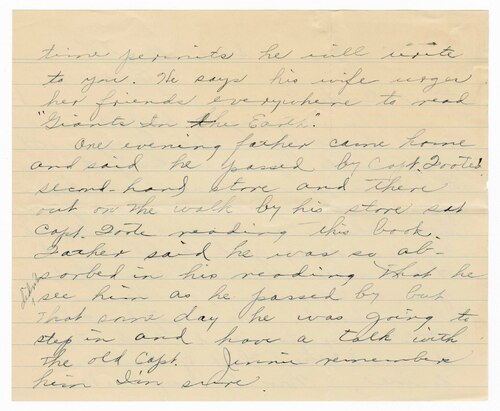 time permits he will write
to you. He says his wife urges
her friends everywhere to read
"Giants In the Earth".
One evening father came home
and said he passed by Capt. Foote's
second-hand store and there
out on the walk by his store sat
Capt. Foote reading this book.
Father said he was so ab-
sorbed in his reading that he
didn't
see him as he passed by but
that some day he was going to
step in and have a talk with
the old Capt. Jennie remembers
him I'm sure.